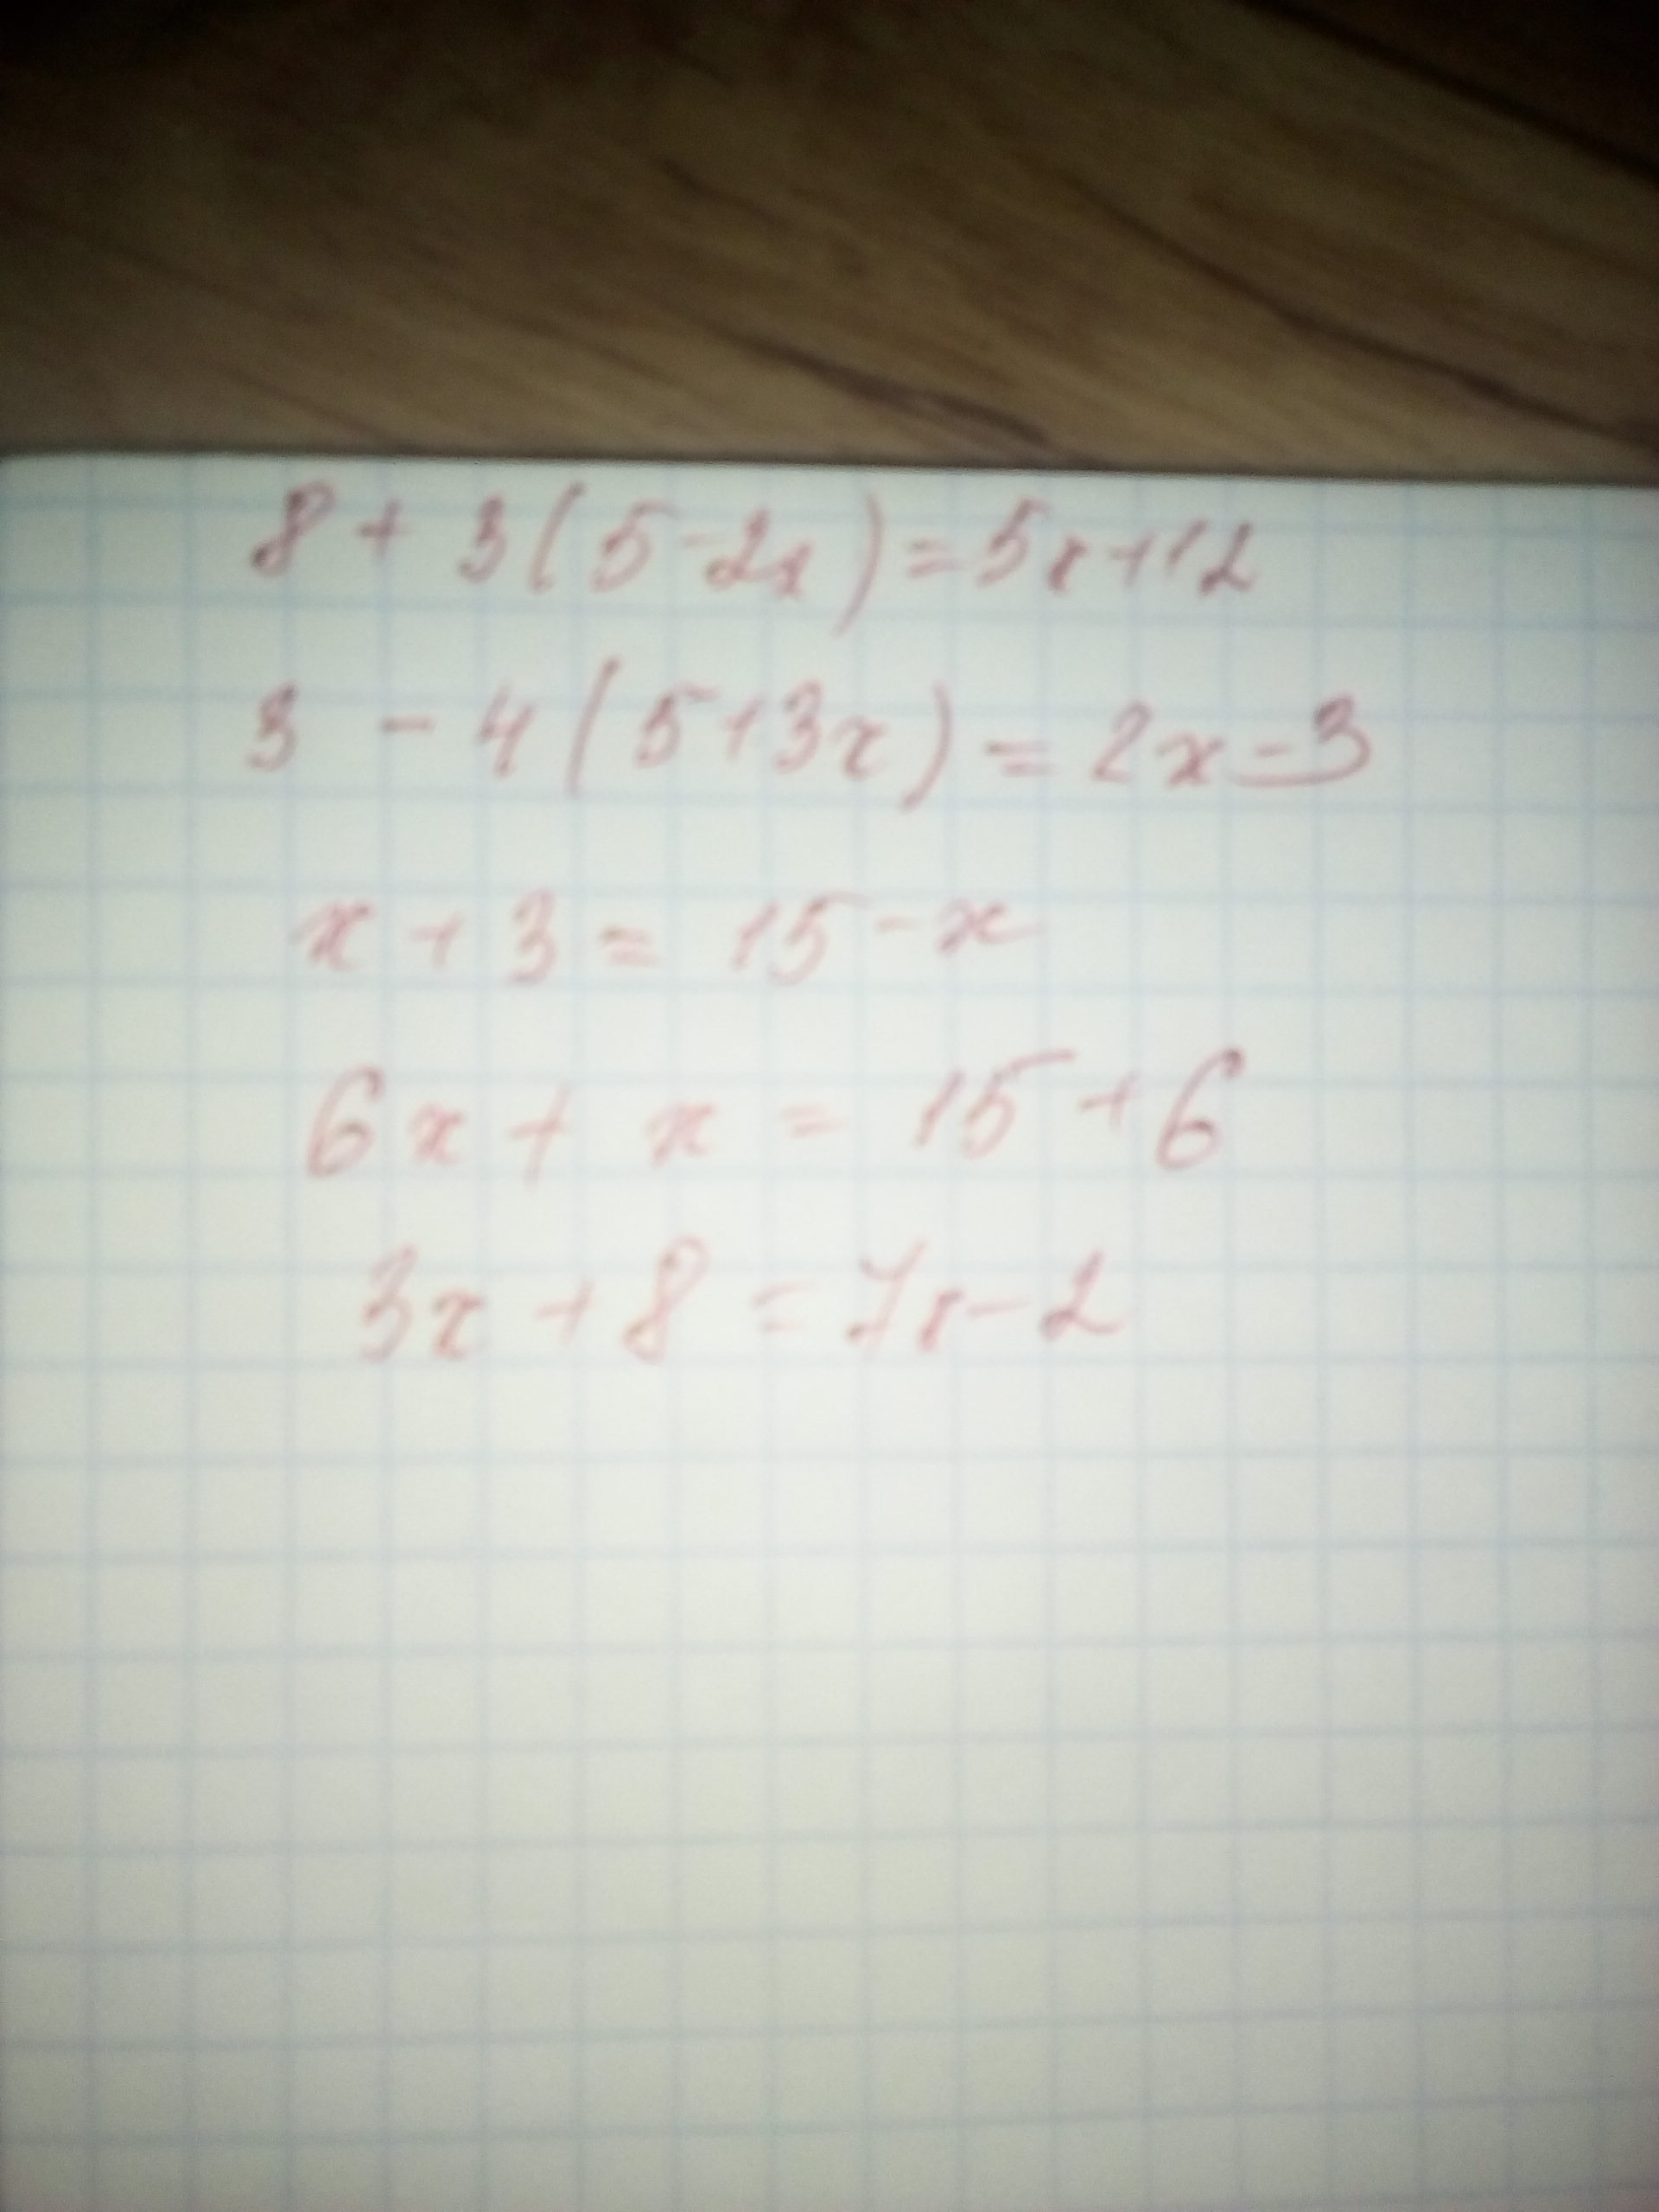 8 + 3(5-2x)=5x+12
3 - 4(5+3x) = 2x-3
x+3 = 15-x
6x + x = 15+6
3x + 8 = 7x-2